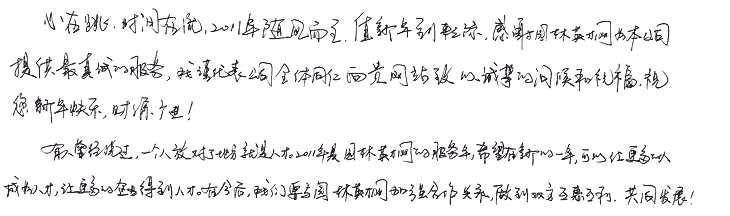 心在跳,时间在流,2011年随风而至。值新年到来之际,感谢园林英才网为本公司
提供最真诚的服务,我谨代表公司全体同仁向贵网站致以诚挚的问候和祝福,祝
您新年快乐,财源广进!
有人曾经说过,一个人放对了地方就是人才。2011年是园林英才网的服务年,希望在新的一年,可以让更多的人
成为人才,让更多的企业得到人才。在今后,我们要与园林英才网加强合作关系,做到双方互惠互利,共同发展!